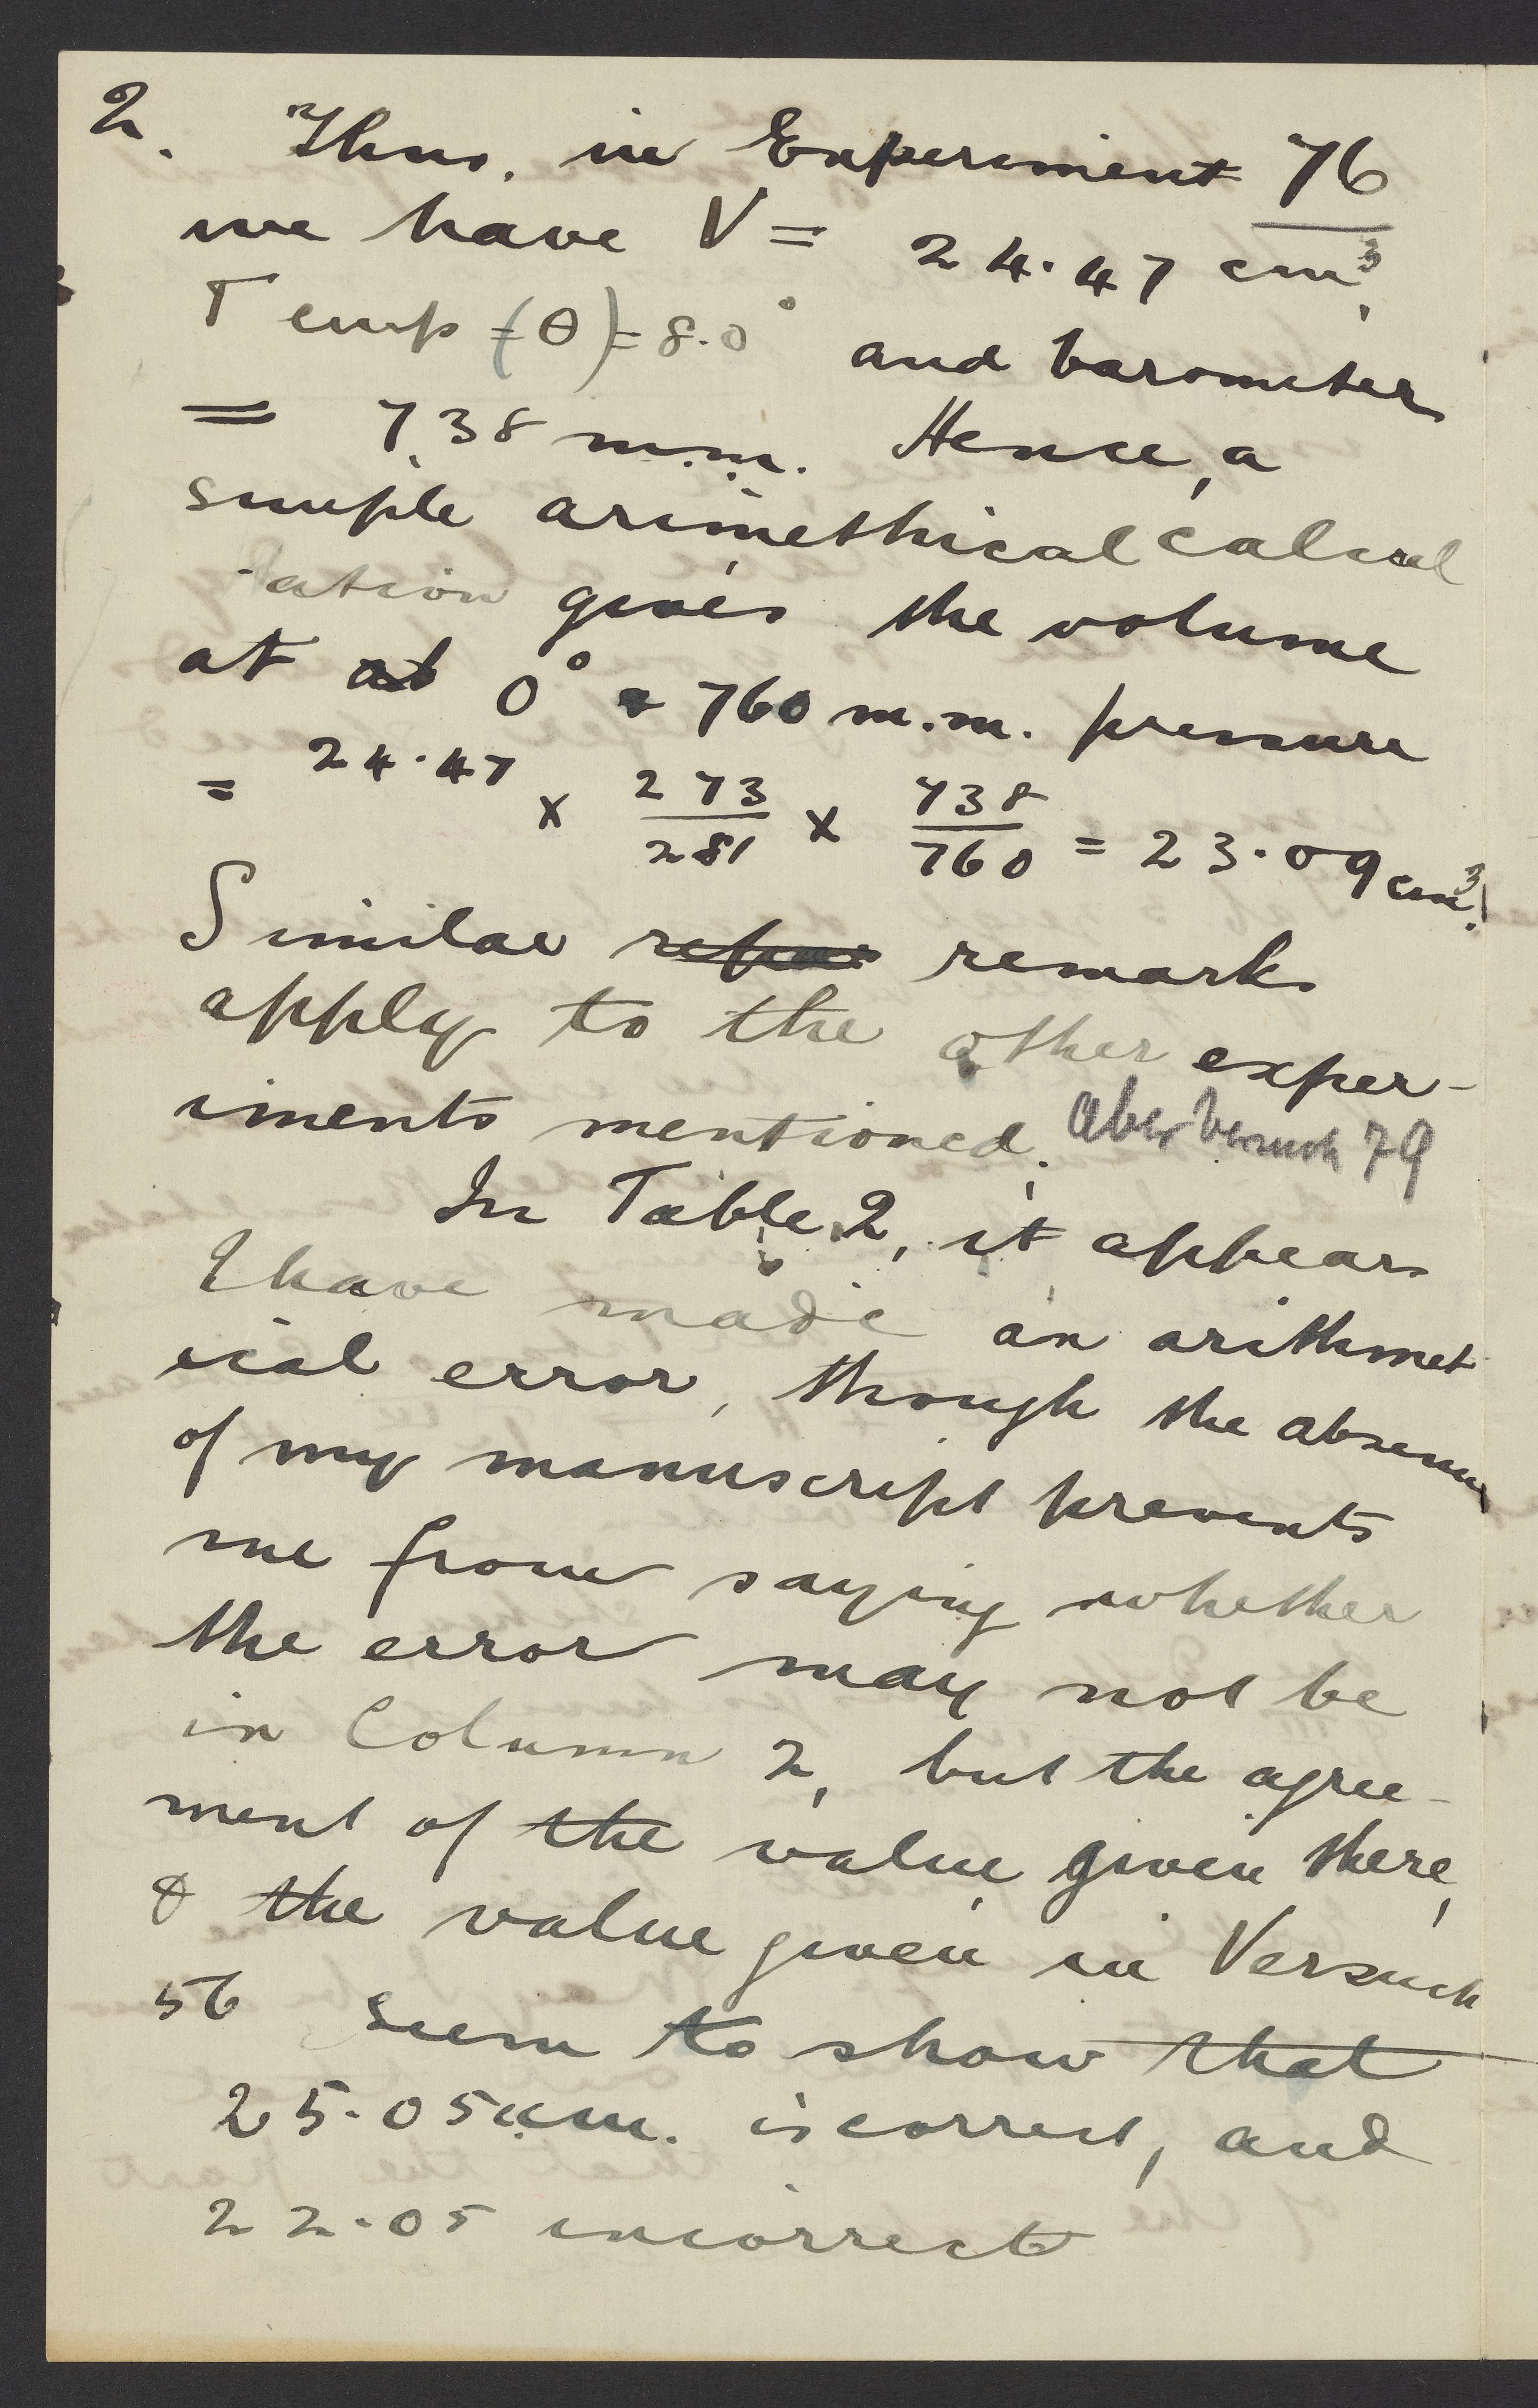 2. Thus, in Experiment 76
we have V = 24.47 cm³,
Temp (θ) = 8.0° and barometer
= 738 m.m. Hence, a
simple arimethical calcul
-ation gives the volume
at at 0° & 760 m.m. pressure
= 24.47 × 273/281 × 738/760 = 23.09 cm³.
Similar remarks
apply to the other exper-
iments mentioned. Aber Versuch 79
In Table 2, it appears
I have made an arithmet
ical error, though the absence
of my manuscript prevents
me from saying whether
the error may not be
in Column 2, but the agree-
ment of the value given there,
& the value given in Versuch
56 seem to show that
25.05 c.cm. is correct, and
22.05 incorrect